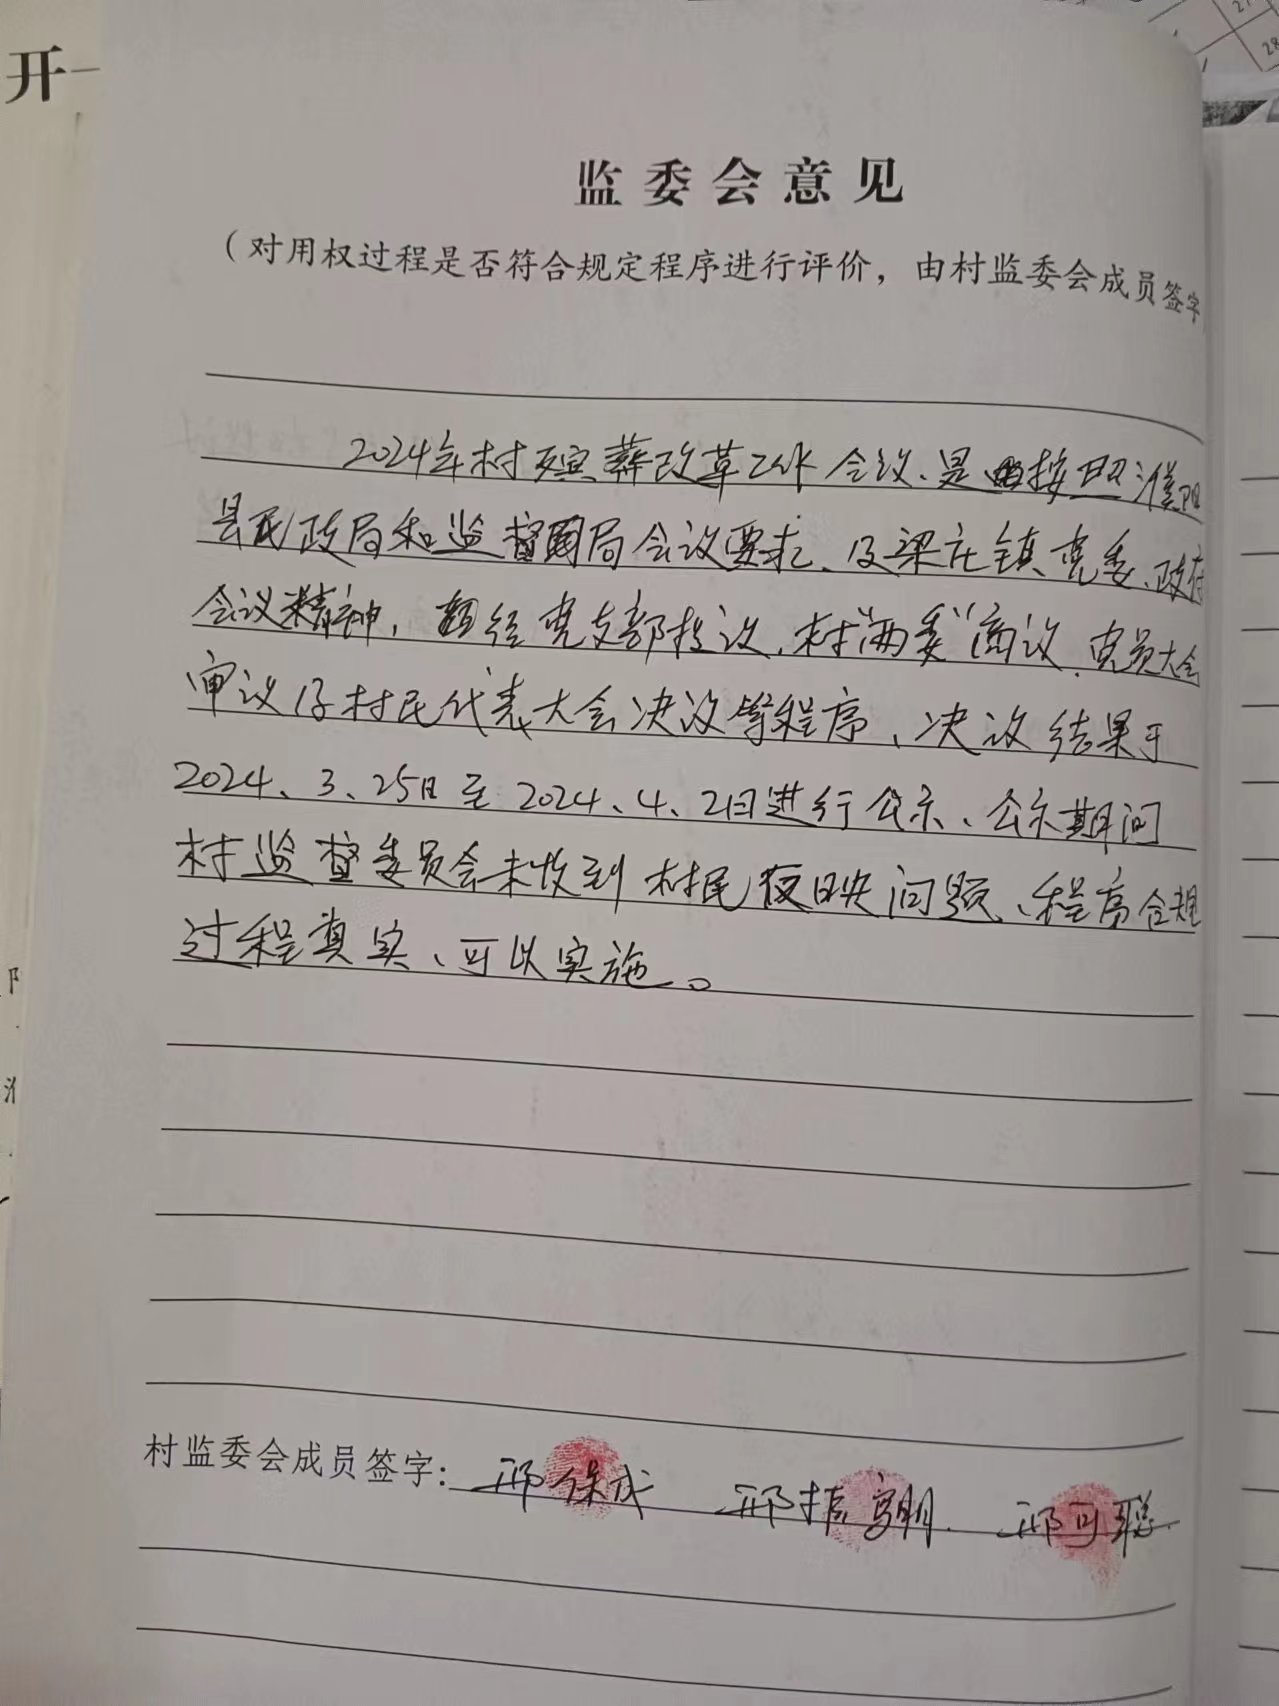 开
监委会意见
（对用权过程是否符合规定程序进行评价，由村监委会成员签字
2024年村殡葬改革工作会议、是按照濮阳
县民政局和监督局会议要求、及梁庄镇党委、政府
会议精神，经党支部提议、村"两委"商议、党员大会
审议及村民代表大会决议等程序、决议结果于
2024、3、25日至2024、4、2日进行公示、公示期间
村监督委员会未收到村民反映问题、程序合规
过程真实、可以实施。
村监委会成员签字：邢保成 邢振 邢可聪
27
28